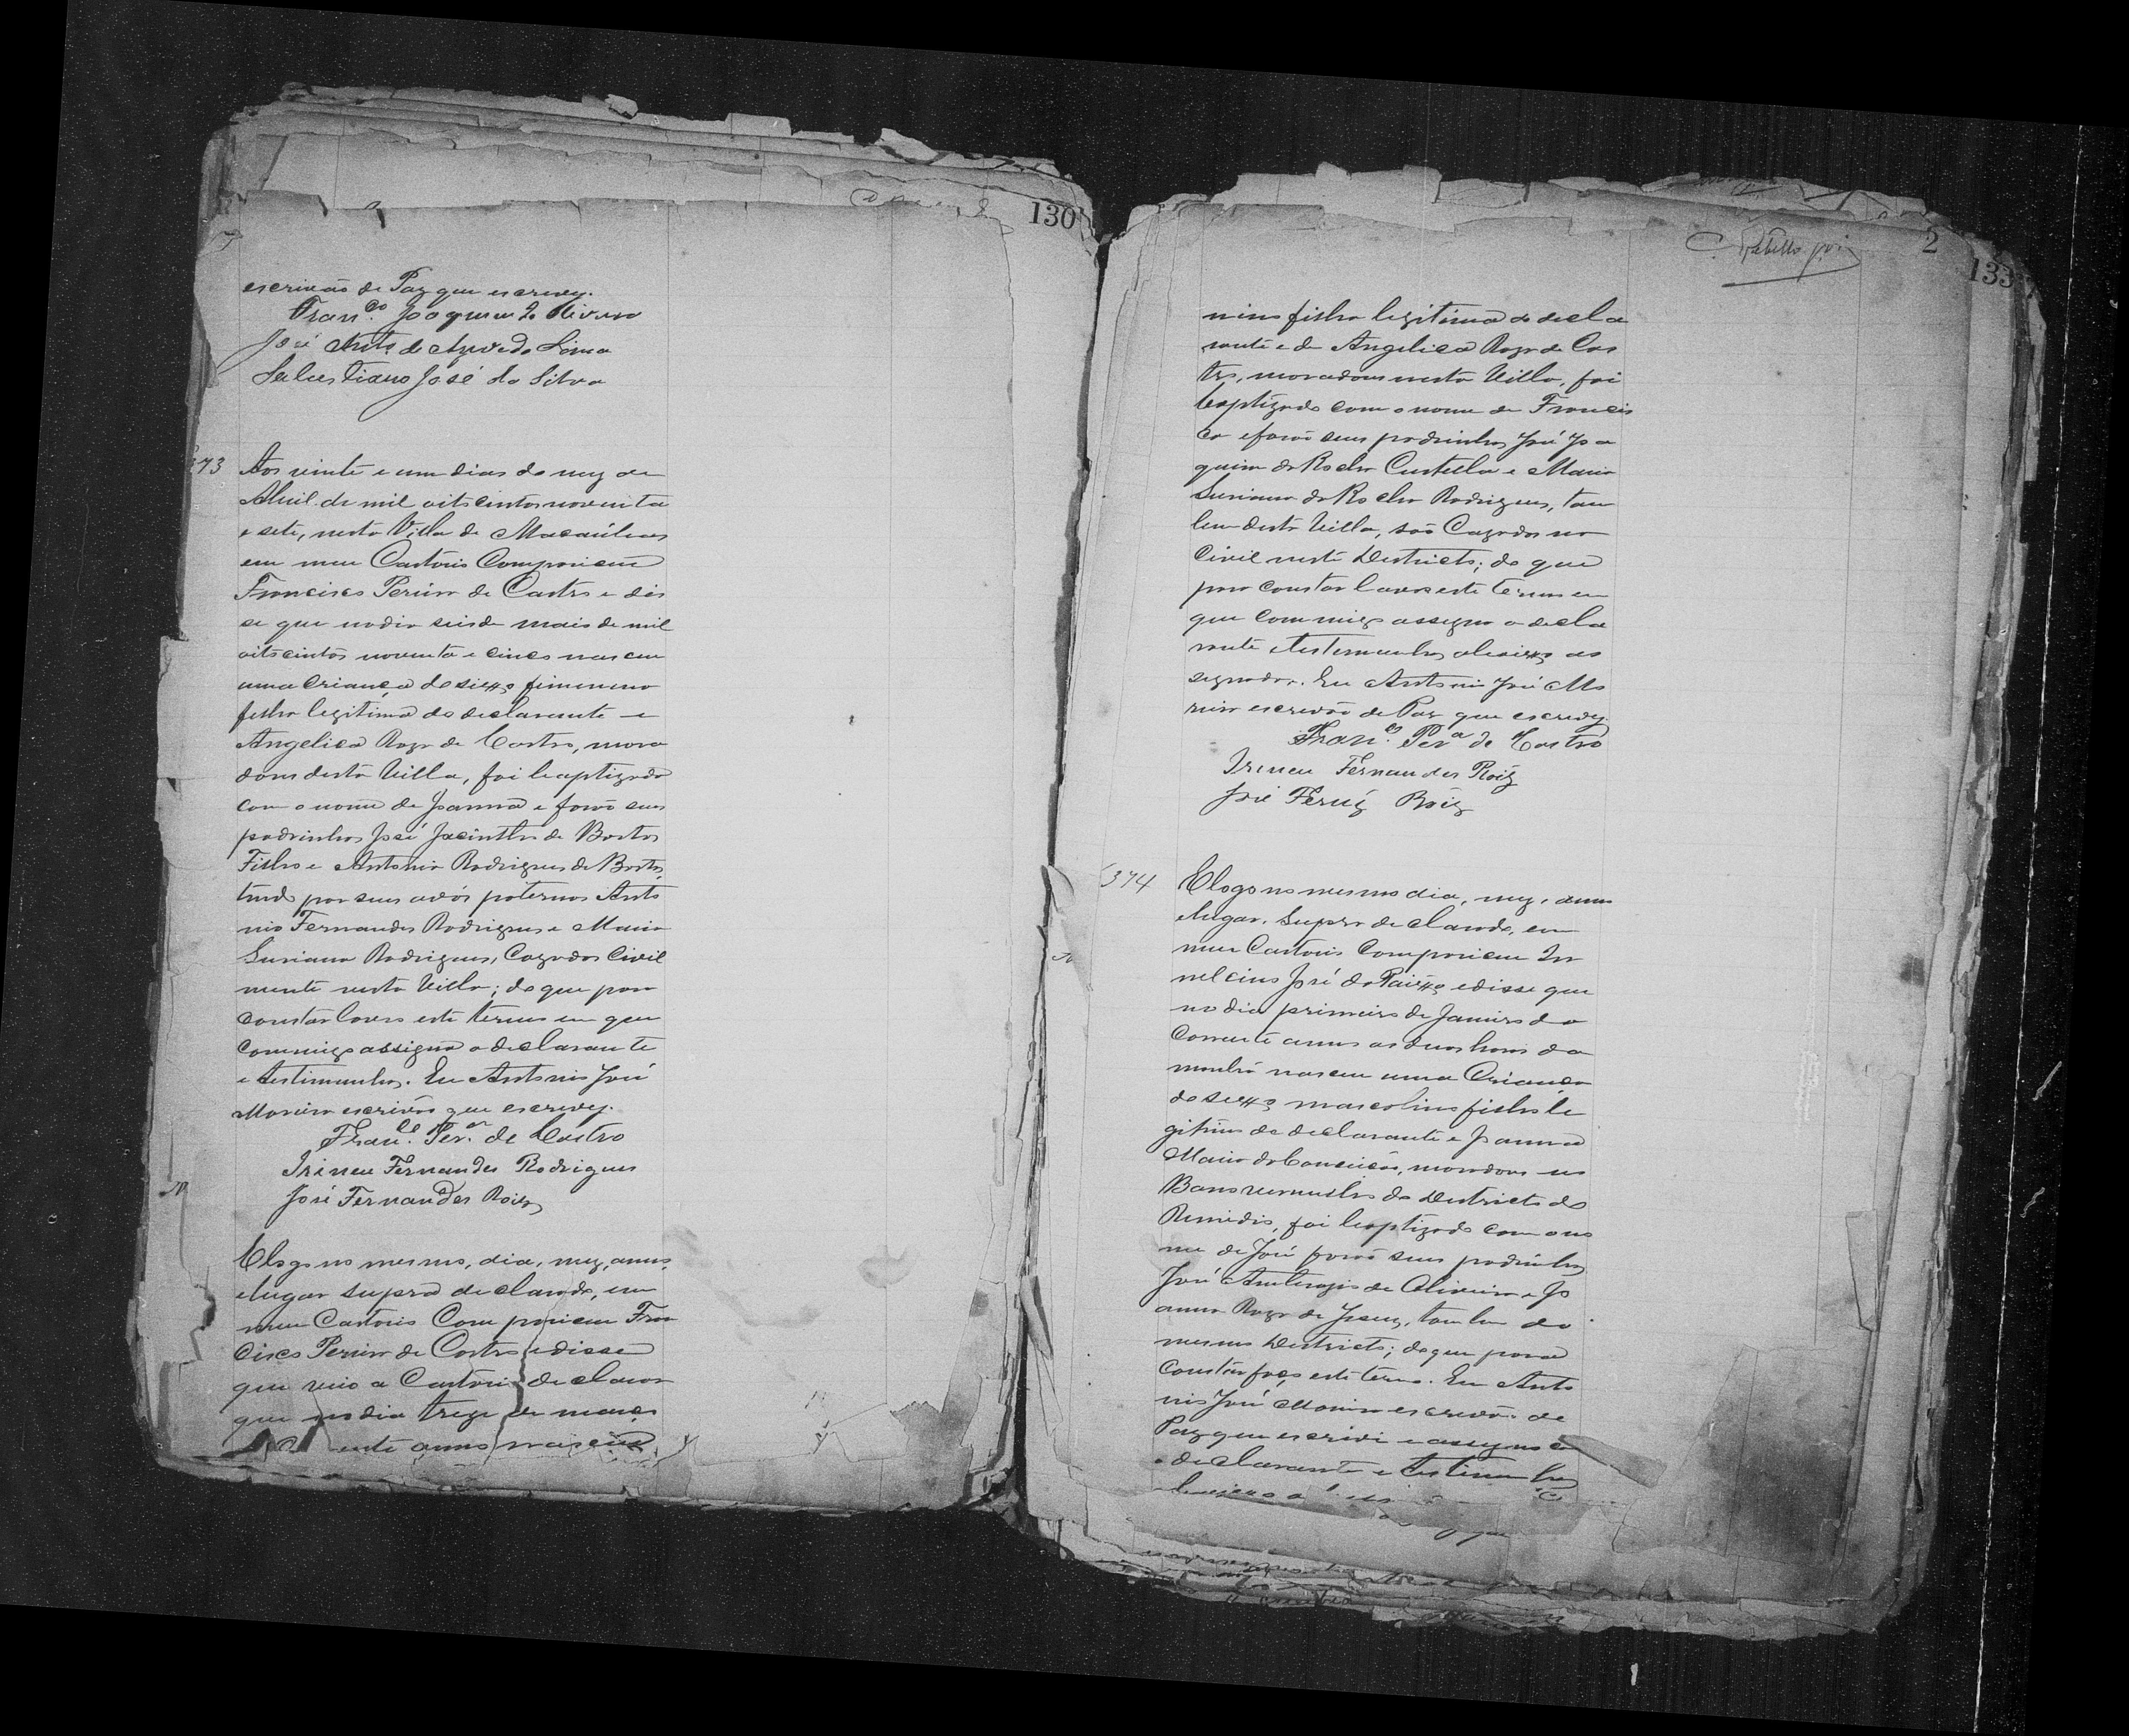 130
escrivão de Paz que escrevy.
Fran.co Joaquim de Oliveira
José Anto de Azevedo Lima
Salustiano José da Silva
373
Aos vinte e um dias do mez de
Abril de mil oitocentos noventa
e sete, nesta Villa de Macaúbas
em meu Cartorio Compareceu
Francisco Pereira de Castro e dis
se que no dia seis de maio de mil
oitocentos noventa e cinco nasceu
uma Criança do sexo feminino
filha legitima do declarante e
Angelica Roza de Castro, mora
dores desta Villa, foi baptizada
com o nome de Joanna e forão seus
padrinhos José Jacintho de Bastos
Filho e Antonia Rodrigues de Bastos,
tendo por seus avós paternos Anto
nio Fernandes Rodrigues e Maria
Suriana Rodrigues, Cazados Civil
mente nesta Villa; do que para
constar lavro este termo em que
commigo assigna o declarante
e testimunhas. Eu Antonio José
Moreira escrivão que escrevy.
Fran.co Per.a de Castro
Irineu Fernandes Rodrigues
José Fernandes Roiz
E logo no mesmo, dia, mez, anno,
e lugar supra declarado, em
meu Cartorio Compareceu Fran
cisco Pereira de Castro e disse
que veio a Cartorio declarar
que no dia treze de março
anno nasceu
2
133
Rabello
nino filha legitima do decla
rante e de Angelica Roza de Cas
tro, moradores nesta Villa, foi
baptizada com o nome de Francis
ca e forão seus padrinhos José Joa
quim da Rocha Castella e Maria
Suriana da Rocha Rodrigues, tam
bem desta Villa, são Cazados no
Civil neste Destricto; do que
para constar lavro este termo em
que commigo assigna o decla
rante e testemunhas abaixo as
signados. Eu Antonio José Mo
reira escrivão de Paz que escrevy.
Fran.co Per.a de Castro
Irineu Fernandes Roiz
José Fernz Roiz
374
E logo no mesmo dia, mez, anno
e lugar, supra declarado, em
meu Cartorio Compareceu
José da Paixão e disse que
no dia primeiro de Janeiro do
Corrente anno as duas horas da
manhã nasceu uma Criança
do sexo mascolino filho le
gitimo do declarante e Joanna
Maria da Conceição, moradores no
Barro vermelho do Destricto do
Remedio, foi baptizado com o no
me de José forão seus padrinhos
José Ambrozio de Oliveira e Jo
anna Roza de Jesus, tambem do
mesmo Destricto; do que para
constar faço este termo. Eu Anto
nio José Moreira escrivão de
Paz que escrevi e assigno com
o declarante e testimunhas